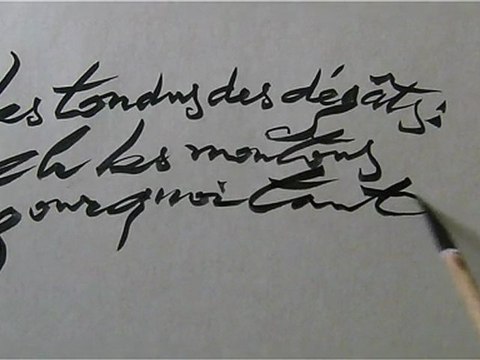 les tondus des dégâts :
eh les moutons
pourquoi tant